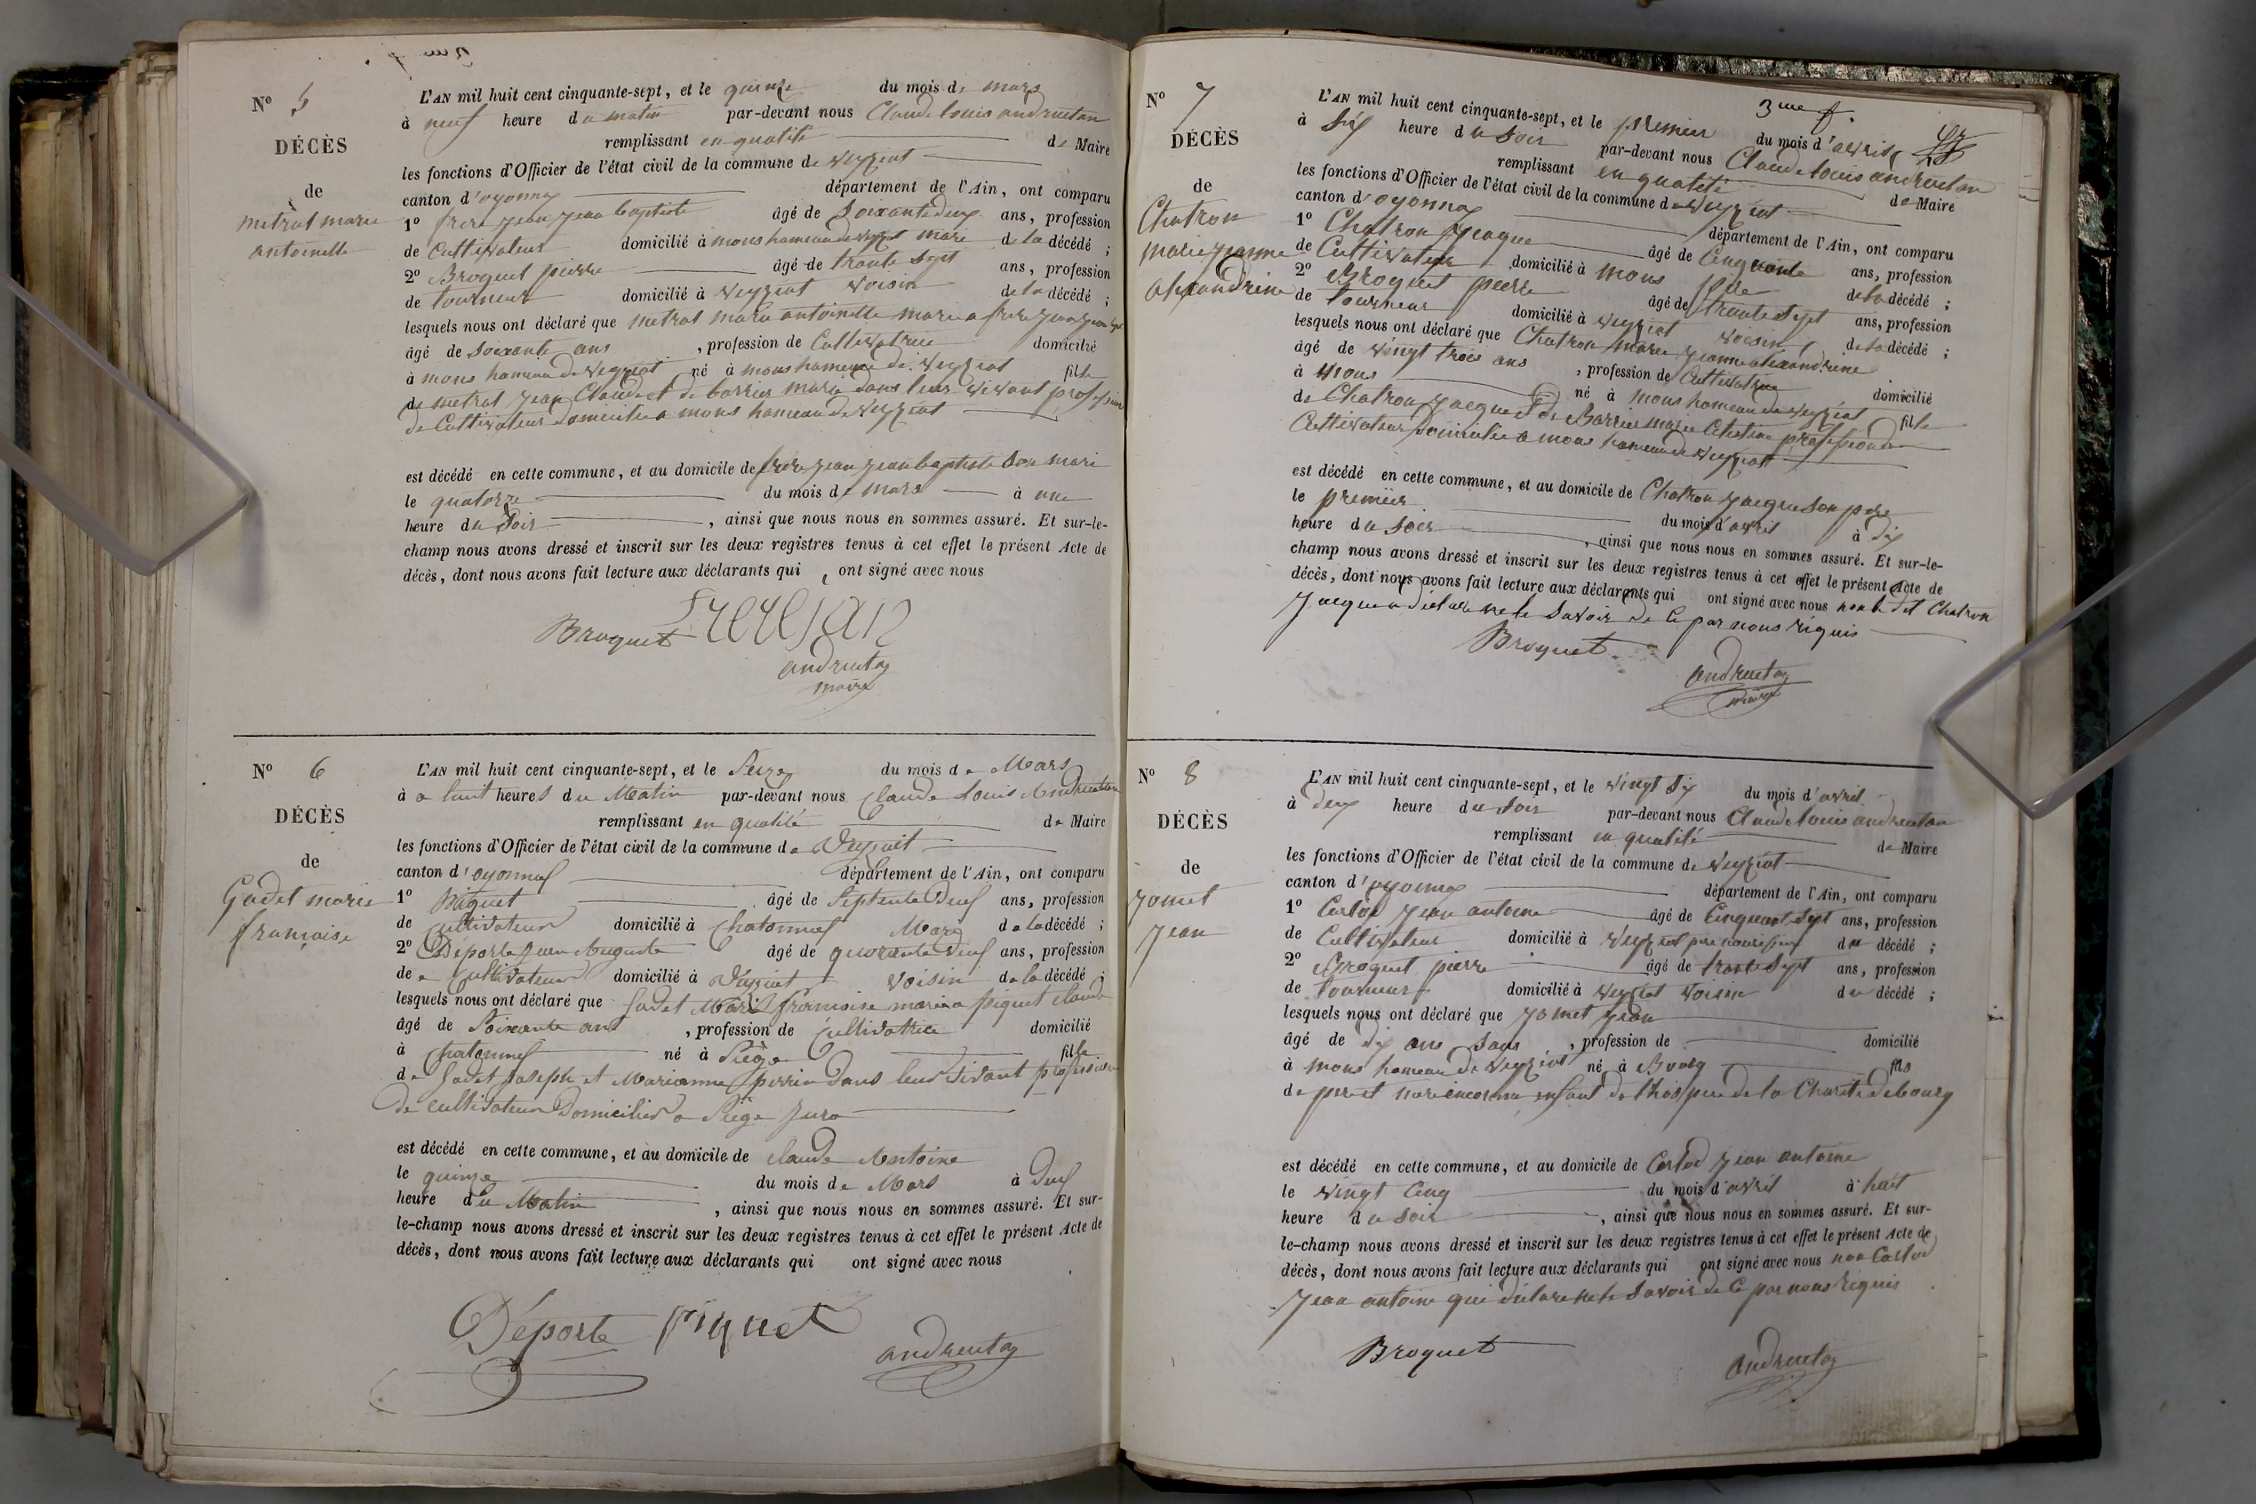 N° 5
DÉCÈS
de
metral marie
antoinette
L'AN mil huit cent cinquante-sept, et le quinze du mois de mars
à neuf heure du matin par-devant nous Claude Louis andreutan
remplissant en qualité de Maire
les fonctions d'Officier de l'état civil de la commune de veyziat
canton d'oyonnax département de l'Ain, ont comparu
1° frere jean jean baptiste âgé de soixante deux ans, profession
de Cultivateur domicilié à mons hameau de veyziat mari de la décédé ;
2° Broquet pierre âgé de trante sept ans, profession
de tourneur domicilié à veyziat voisin de la décédé ;
lesquels nous ont déclaré que metral marie antoinette marie a frere jean jean bpt
âgé de soixante ans , profession de Cultivatrice domicilié
à mons hameau de veyziat né à mons hameau de veyziat fille
de metral jean Claude et de barrier marie dans leur vivant profession
de Cultivateur domicilie a mons hameau de veyziat
est décédé en cette commune, et au domicile de frere jean jean baptiste son mari
le quatorze du mois de mars à une
heure du soir , ainsi que nous nous en sommes assuré. Et sur-le-
champ nous avons dressé et inscrit sur les deux registres tenus à cet effet le présent Acte de
décès, dont nous avons fait lecture aux déclarants qui ont signé avec nous
Broquet frerejan
andreutan
maire
N° 6
DÉCÈS
de
Gadet marie
françaisе
L'AN mil huit cent cinquante-sept, et le Seize du mois de Mars
à a huit heures du Matin par-devant nous Claude Louis Andreutan
remplissant en qualité de Maire
les fonctions d'Officier de l'état civil de la commune de Veyziat
canton d'oyonnax département de l'Ain, ont comparu
1° Piquet âgé de Septente Deux ans, profession
de Cultivateur domicilié à Chatonnax Mari de la décédé ;
2° Déporte Jean Auguste âgé de quarante deux ans, profession
de Cultivateur domicilié à Veyziat voisin de la décédé ;
lesquels nous ont déclaré que Gadet Marie françoise marie a piquet claude
âgé de Soixante ans , profession de Cultivatrice domicilié
à Chatonnax né à Siège fille
de Gadet Joseph et Marianne perrin dans leur vivant profession
de cultivateur Domicilies a Siège Jura
est décédé en cette commune, et au domicile de claude Antoine
le quinze du mois de Mars à Deux
heure du Matin , ainsi que nous nous en sommes assuré. Et sur-
le-champ nous avons dressé et inscrit sur les deux registres tenus à cet effet le présent Acte de
décès, dont nous avons fait lecture aux déclarants qui ont signé avec nous
Déporte piquet
andreutan
3me f.
N° 7
DÉCÈS
de
Chatron
marie jeanne
alexandrine
L'AN mil huit cent cinquante-sept, et le premier du mois d'avril
à Six heure du soir par-devant nous Claude Louis andreutan
remplissant en qualité de Maire
les fonctions d'Officier de l'état civil de la commune de veyziat
canton d'oyonnax département de l'Ain, ont comparu
1° Chatron jacque âgé de Cinquante ans, profession
de Cultivateur domicilié à mons père de la décédé ;
2° Broquet pierre âgé de trante sept ans, profession
de tourneur domicilié à veyziat voisin de la décédé ;
lesquels nous ont déclaré que Chatron marie jeanne alexandrine
âgé de vingt trois ans , profession de Cultivatrice domicilié
à mons né à mons hameau de veyziat fille
de Chatron jacque et de Barrier marie profession de
Cultivateur domicilie a mons hameau de veyziat
est décédé en cette commune, et au domicile de Chatron jacque son père
le premier du mois d'avril à dix
heure du soir , ainsi que nous nous en sommes assuré. Et sur-le-
champ nous avons dressé et inscrit sur les deux registres tenus à cet effet le présent Acte de
décès, dont nous avons fait lecture aux déclarants qui ont signé avec nous non le dit Chatron
Jacque a déclare ne le savoir de ce par nous réquis
Broquet
andreutan
maire
N° 8
DÉCÈS
de
jomet
jean
L'AN mil huit cent cinquante-sept, et le vingt six du mois d'avril
à deux heure du soir par-devant nous Claude Louis andreutan
remplissant en qualité de Maire
les fonctions d'Officier de l'état civil de la commune de veyziat
canton d'oyonnax département de l'Ain, ont comparu
1° Carlod jean antoine âgé de Cinquant sept ans, profession
de Cultivateur domicilié à veyziat père nourissier du décédé ;
2° Broquet pierre âgé de trante sept ans, profession
de tourneur domicilié à veyziat voisin du décédé ;
lesquels nous ont déclaré que jomet jean
âgé de dix ans sans , profession de domicilié
à mons hameau de veyziat né à Bourg fils
de per et mere inconnu enfant de lhospice de la Charité de bourg
est décédé en cette commune, et au domicile de Carlod jean antoine
le vingt Cinq du mois d'avril à huit
heure du soir , ainsi que nous nous en sommes assuré. Et sur-
le-champ nous avons dressé et inscrit sur les deux registres tenus à cet effet le présent Acte de
décès, dont nous avons fait lecture aux déclarants qui ont signé avec nous non Carlod
jean antoine qui déclare ne le savoir de ce par nous réquis
Broquet
andreutan